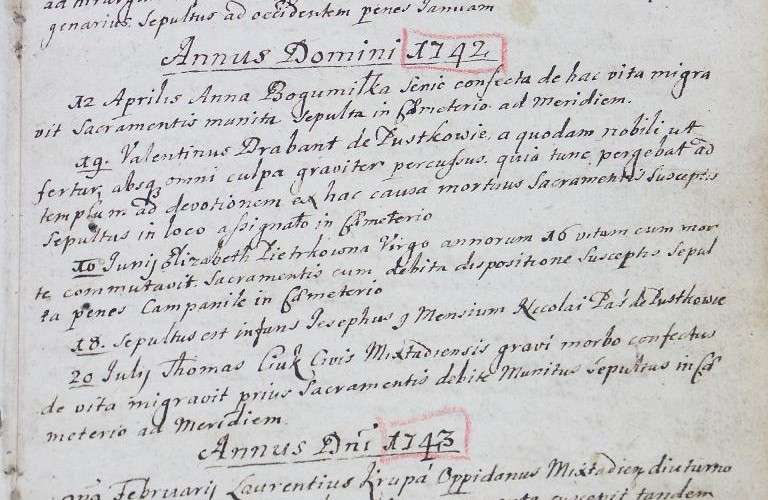 genarius. Sepultus ad occidentem penes Januam
Annus Domini 1742
12 Aprilis Anna Bogumiłka Senio confecta de hac vita migra
vit Sacramentis munita Sepulta in Cæmeterio ad Meridiem.
19. Valentinus Drabant de Pustkowie, a quodam nobili ut
fertur absq omni culpa graviter percussus, quia tunc pergebat ad
templum ad devotionem ex hac causa mortuus Sacramentis Susceptis
Sepultus in loco assignato in Cæmeterio
10 Junij Elizabeth Pietrkowna Virgo annorum 16 vitam cum mor
te commutavit Sacramentis cum debita dispositione Susceptis Sepul
ta penes Campanile in Cæmeterio
18. Sepultus est infans Josephus 9 Mensium Nicolai Paś de Pustkowie
20 Julij Thomas Ciuk Civis Mixtadiensis gravi morbo confectus
de vita migravit prius Sacramentis debite Munitus Sepultus in Cæ
meterio ad Meridiem.
Annus Dni 1743
Februarij Laurentius Krupa Oppidanus Mixtadien diuturno
suscepit tandem